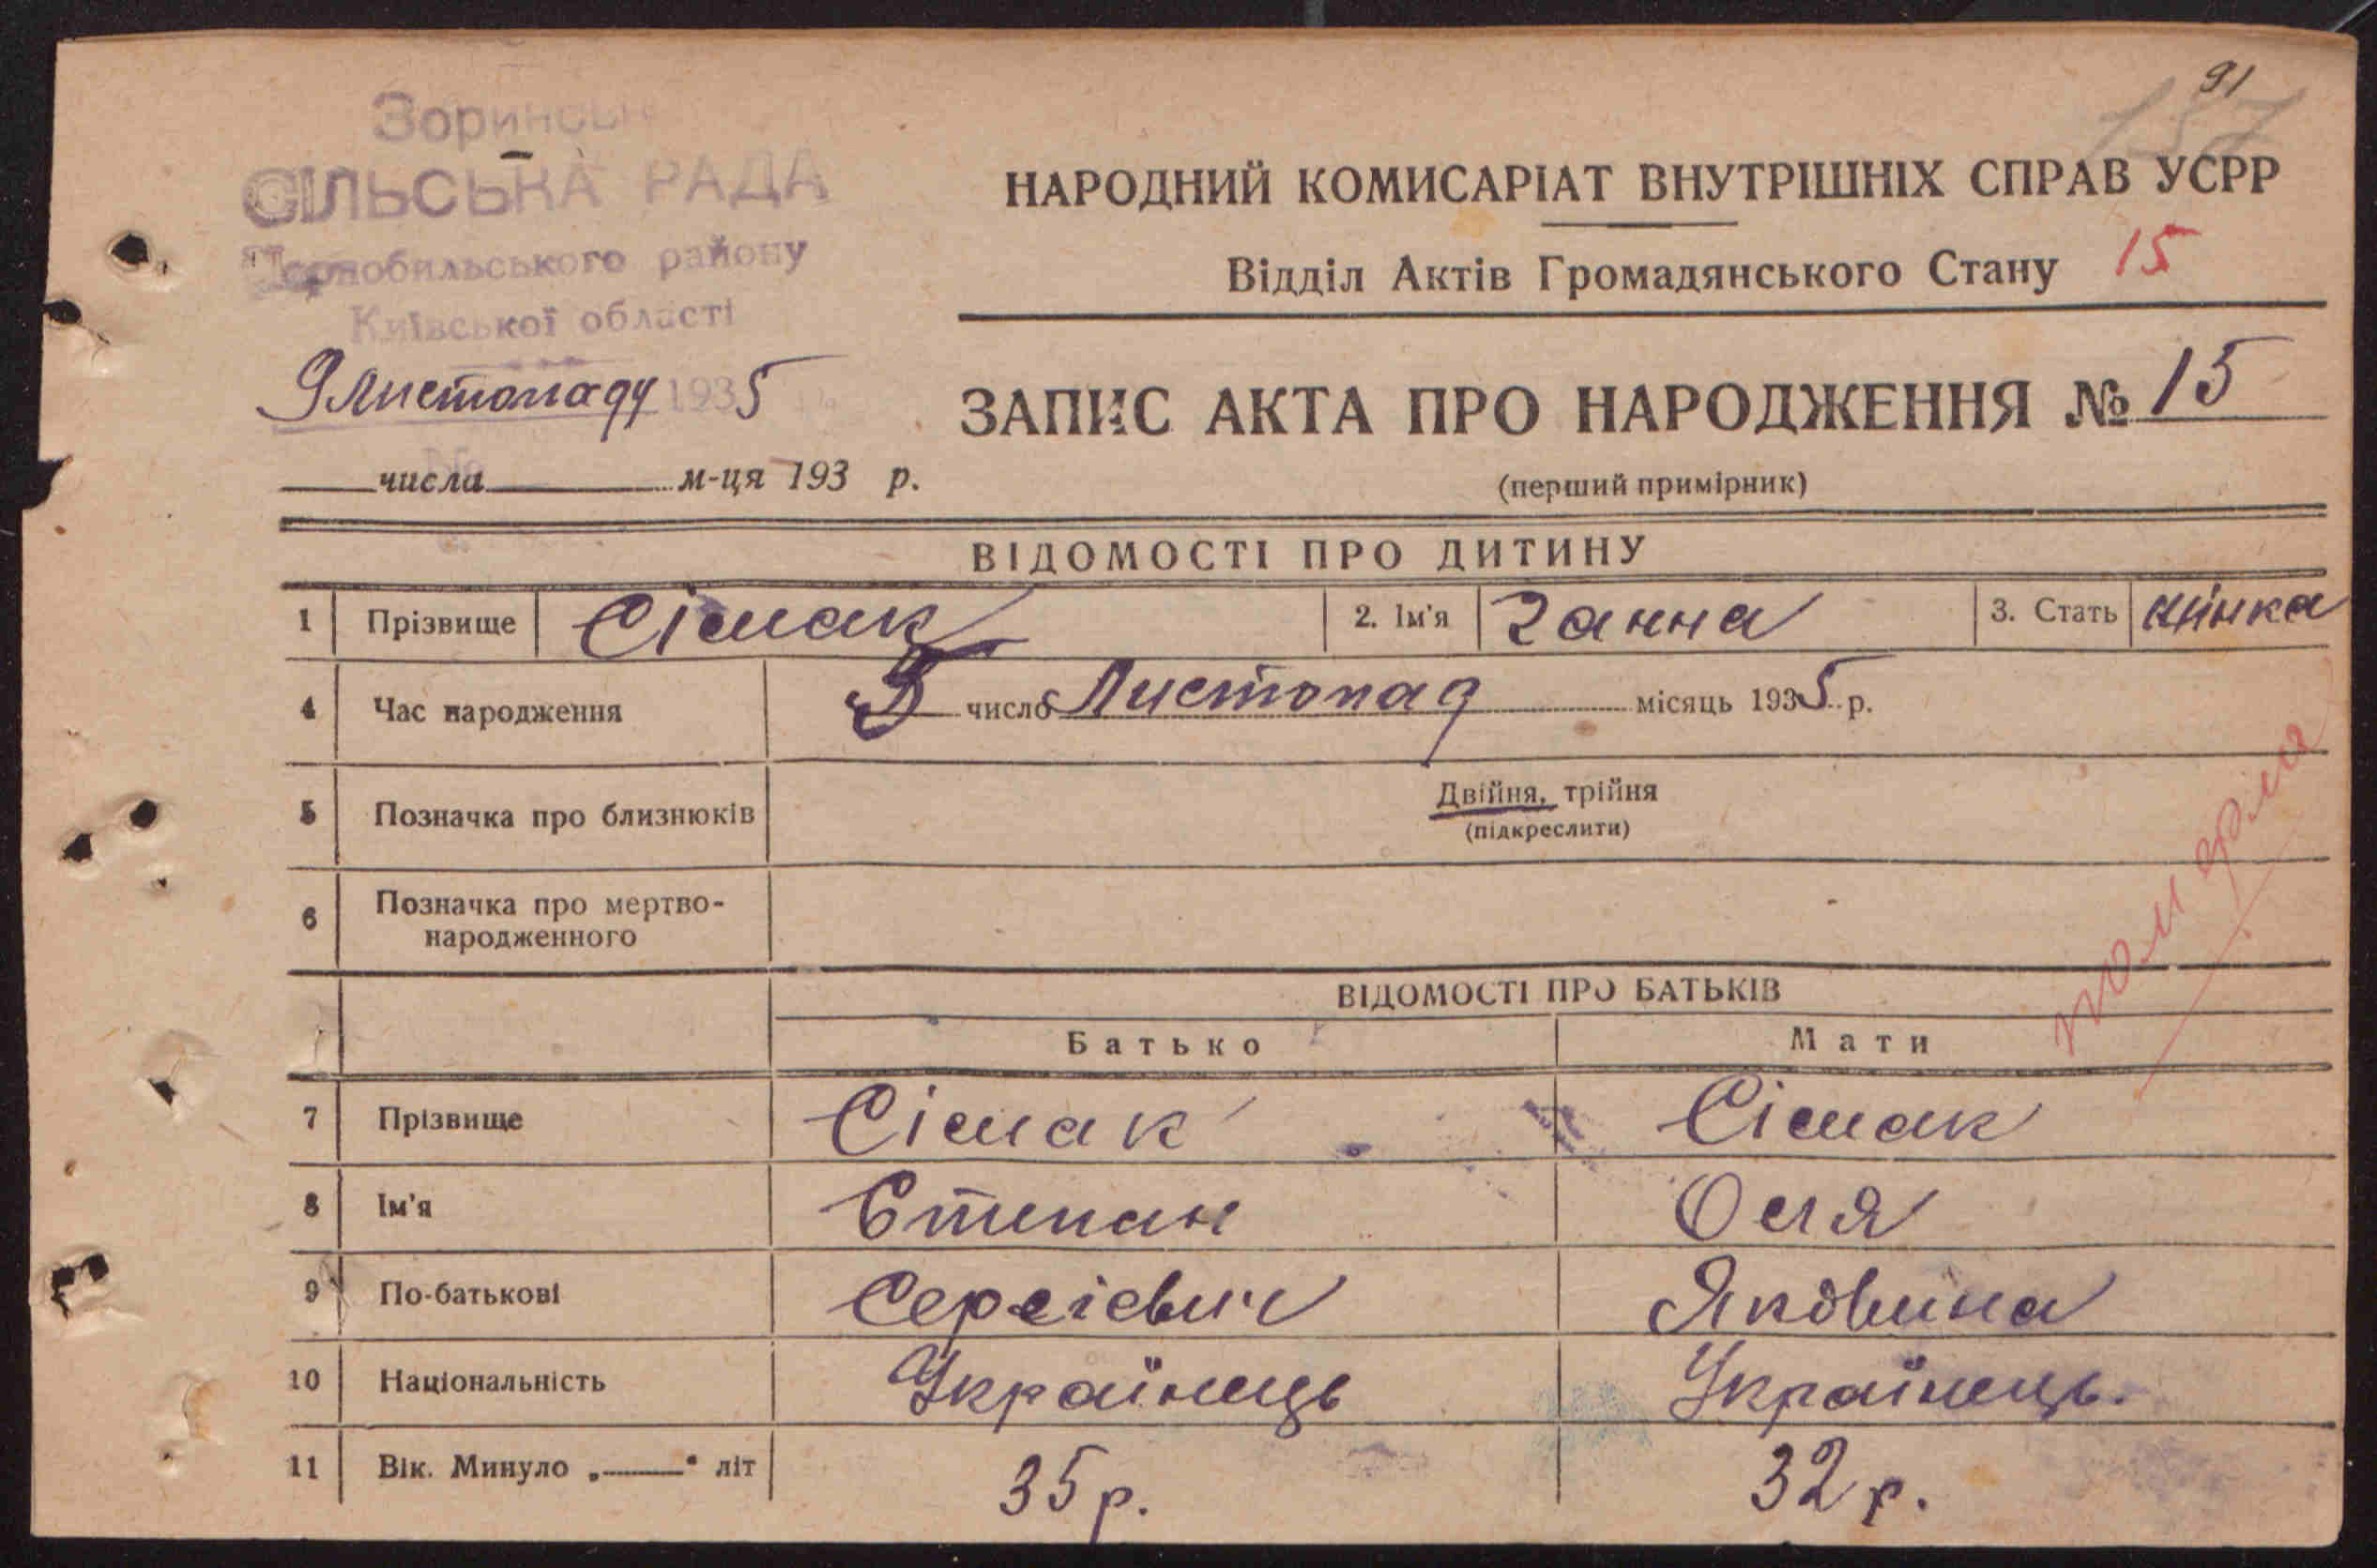 91
157
Зоринська
СІЛЬСЬКА РАДА
Чорнобильського району
Київської області
9 листопаду 1935
числа м-ця 193 р.
НАРОДНИЙ КОМИСАРІАТ ВНУТРІШНІХ СПРАВ УСРР
Відділ Актів Громадянського Стану 15
ЗАПИС АКТА ПРО НАРОДЖЕННЯ № 15
(перший примірник)
ВІДОМОСТІ ПРО ДИТИНУ
1 Прізвище Сімак 2. Ім'я Ганна 3. Стать жінка
4 Час народження 5 число Листопад місяць 1935 р.
5 Позначка про близнюків Двійня, трійня
(підкреслити)
6 Позначка про мертво-
народженного
ВІДОМОСТІ ПРО БАТЬКІВ
Батько Мати
7 Прізвище Сімак Сімак
8 Ім'я Степан Оля
9 По-батькові Сергієвич Яковина
10 Національність Українець Українець.
11 Вік. Минуло „ “ літ 35 р. 32 р.